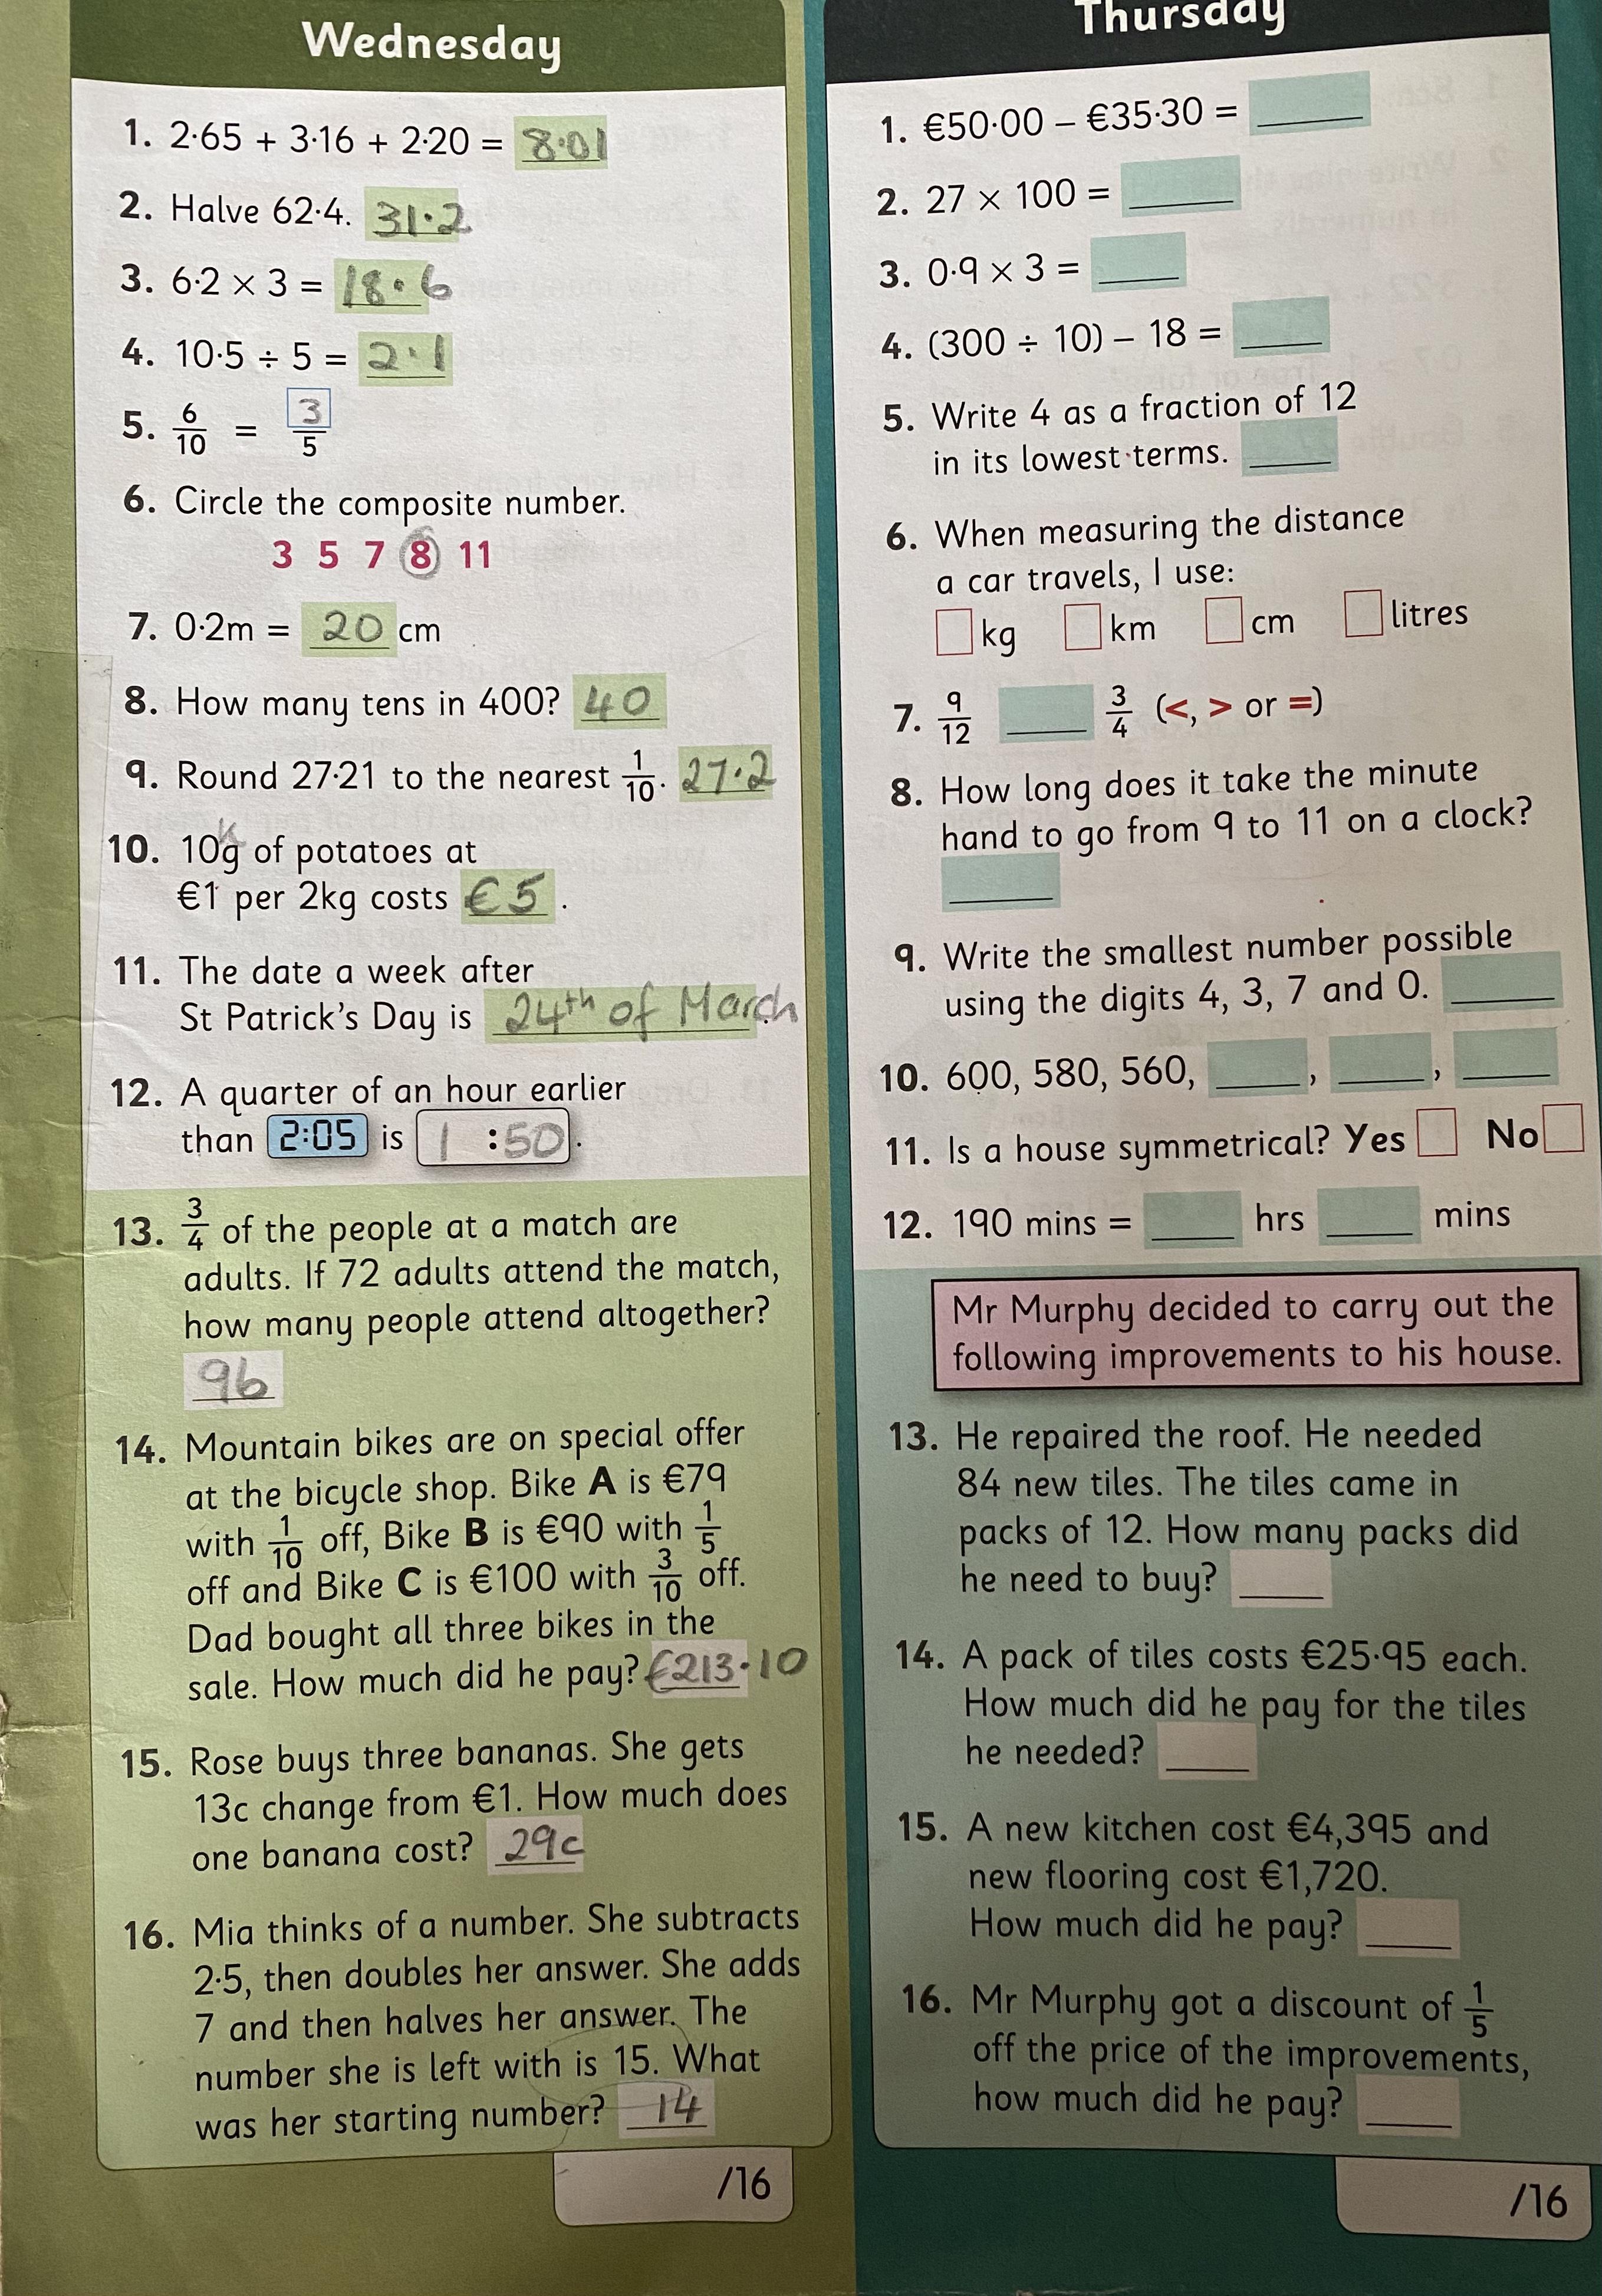 Wednesday
1. 2·65 + 3·16 + 2·20 = 8·01
2. Halve 62·4. 31·2
3. 6·2 × 3 = 18·6
4. 10·5 ÷ 5 = 2·1
5. 6/10 = 3/5
6. Circle the composite number.
3 5 7 8 11
7. 0·2m = 20 cm
8. How many tens in 400? 40
9. Round 27·21 to the nearest 1/10. 27·2
10. 10kg of potatoes at
€1 per 2kg costs €5.
11. The date a week after
St Patrick's Day is 24th of March.
12. A quarter of an hour earlier
than 2:05 is 1:50.
13. 3/4 of the people at a match are
adults. If 72 adults attend the match,
how many people attend altogether?
96
14. Mountain bikes are on special offer
at the bicycle shop. Bike A is €79
with 1/10 off, Bike B is €90 with 1/5
off and Bike C is €100 with 3/10 off.
Dad bought all three bikes in the
sale. How much did he pay? €213·10
15. Rose buys three bananas. She gets
13c change from €1. How much does
one banana cost? 29c
16. Mia thinks of a number. She subtracts
2·5, then doubles her answer. She adds
7 and then halves her answer. The
number she is left with is 15. What
was her starting number? 14
/16
Thursday
1. €50·00 – €35·30 = ____
2. 27 × 100 = ____
3. 0·9 × 3 = ____
4. (300 ÷ 10) – 18 = ____
5. Write 4 as a fraction of 12
in its lowest terms. ____
6. When measuring the distance
a car travels, I use:
kg km cm litres
7. 9/12 ____ 3/4 (<, > or =)
8. How long does it take the minute
hand to go from 9 to 11 on a clock?
____
9. Write the smallest number possible
using the digits 4, 3, 7 and 0. ____
10. 600, 580, 560, ____, ____, ____
11. Is a house symmetrical? Yes No
12. 190 mins = ____ hrs ____ mins
Mr Murphy decided to carry out the
following improvements to his house.
13. He repaired the roof. He needed
84 new tiles. The tiles came in
packs of 12. How many packs did
he need to buy? ____
14. A pack of tiles costs €25·95 each.
How much did he pay for the tiles
he needed? ____
15. A new kitchen cost €4,395 and
new flooring cost €1,720.
How much did he pay? ____
16. Mr Murphy got a discount of 1/5
off the price of the improvements,
how much did he pay? ____
/16